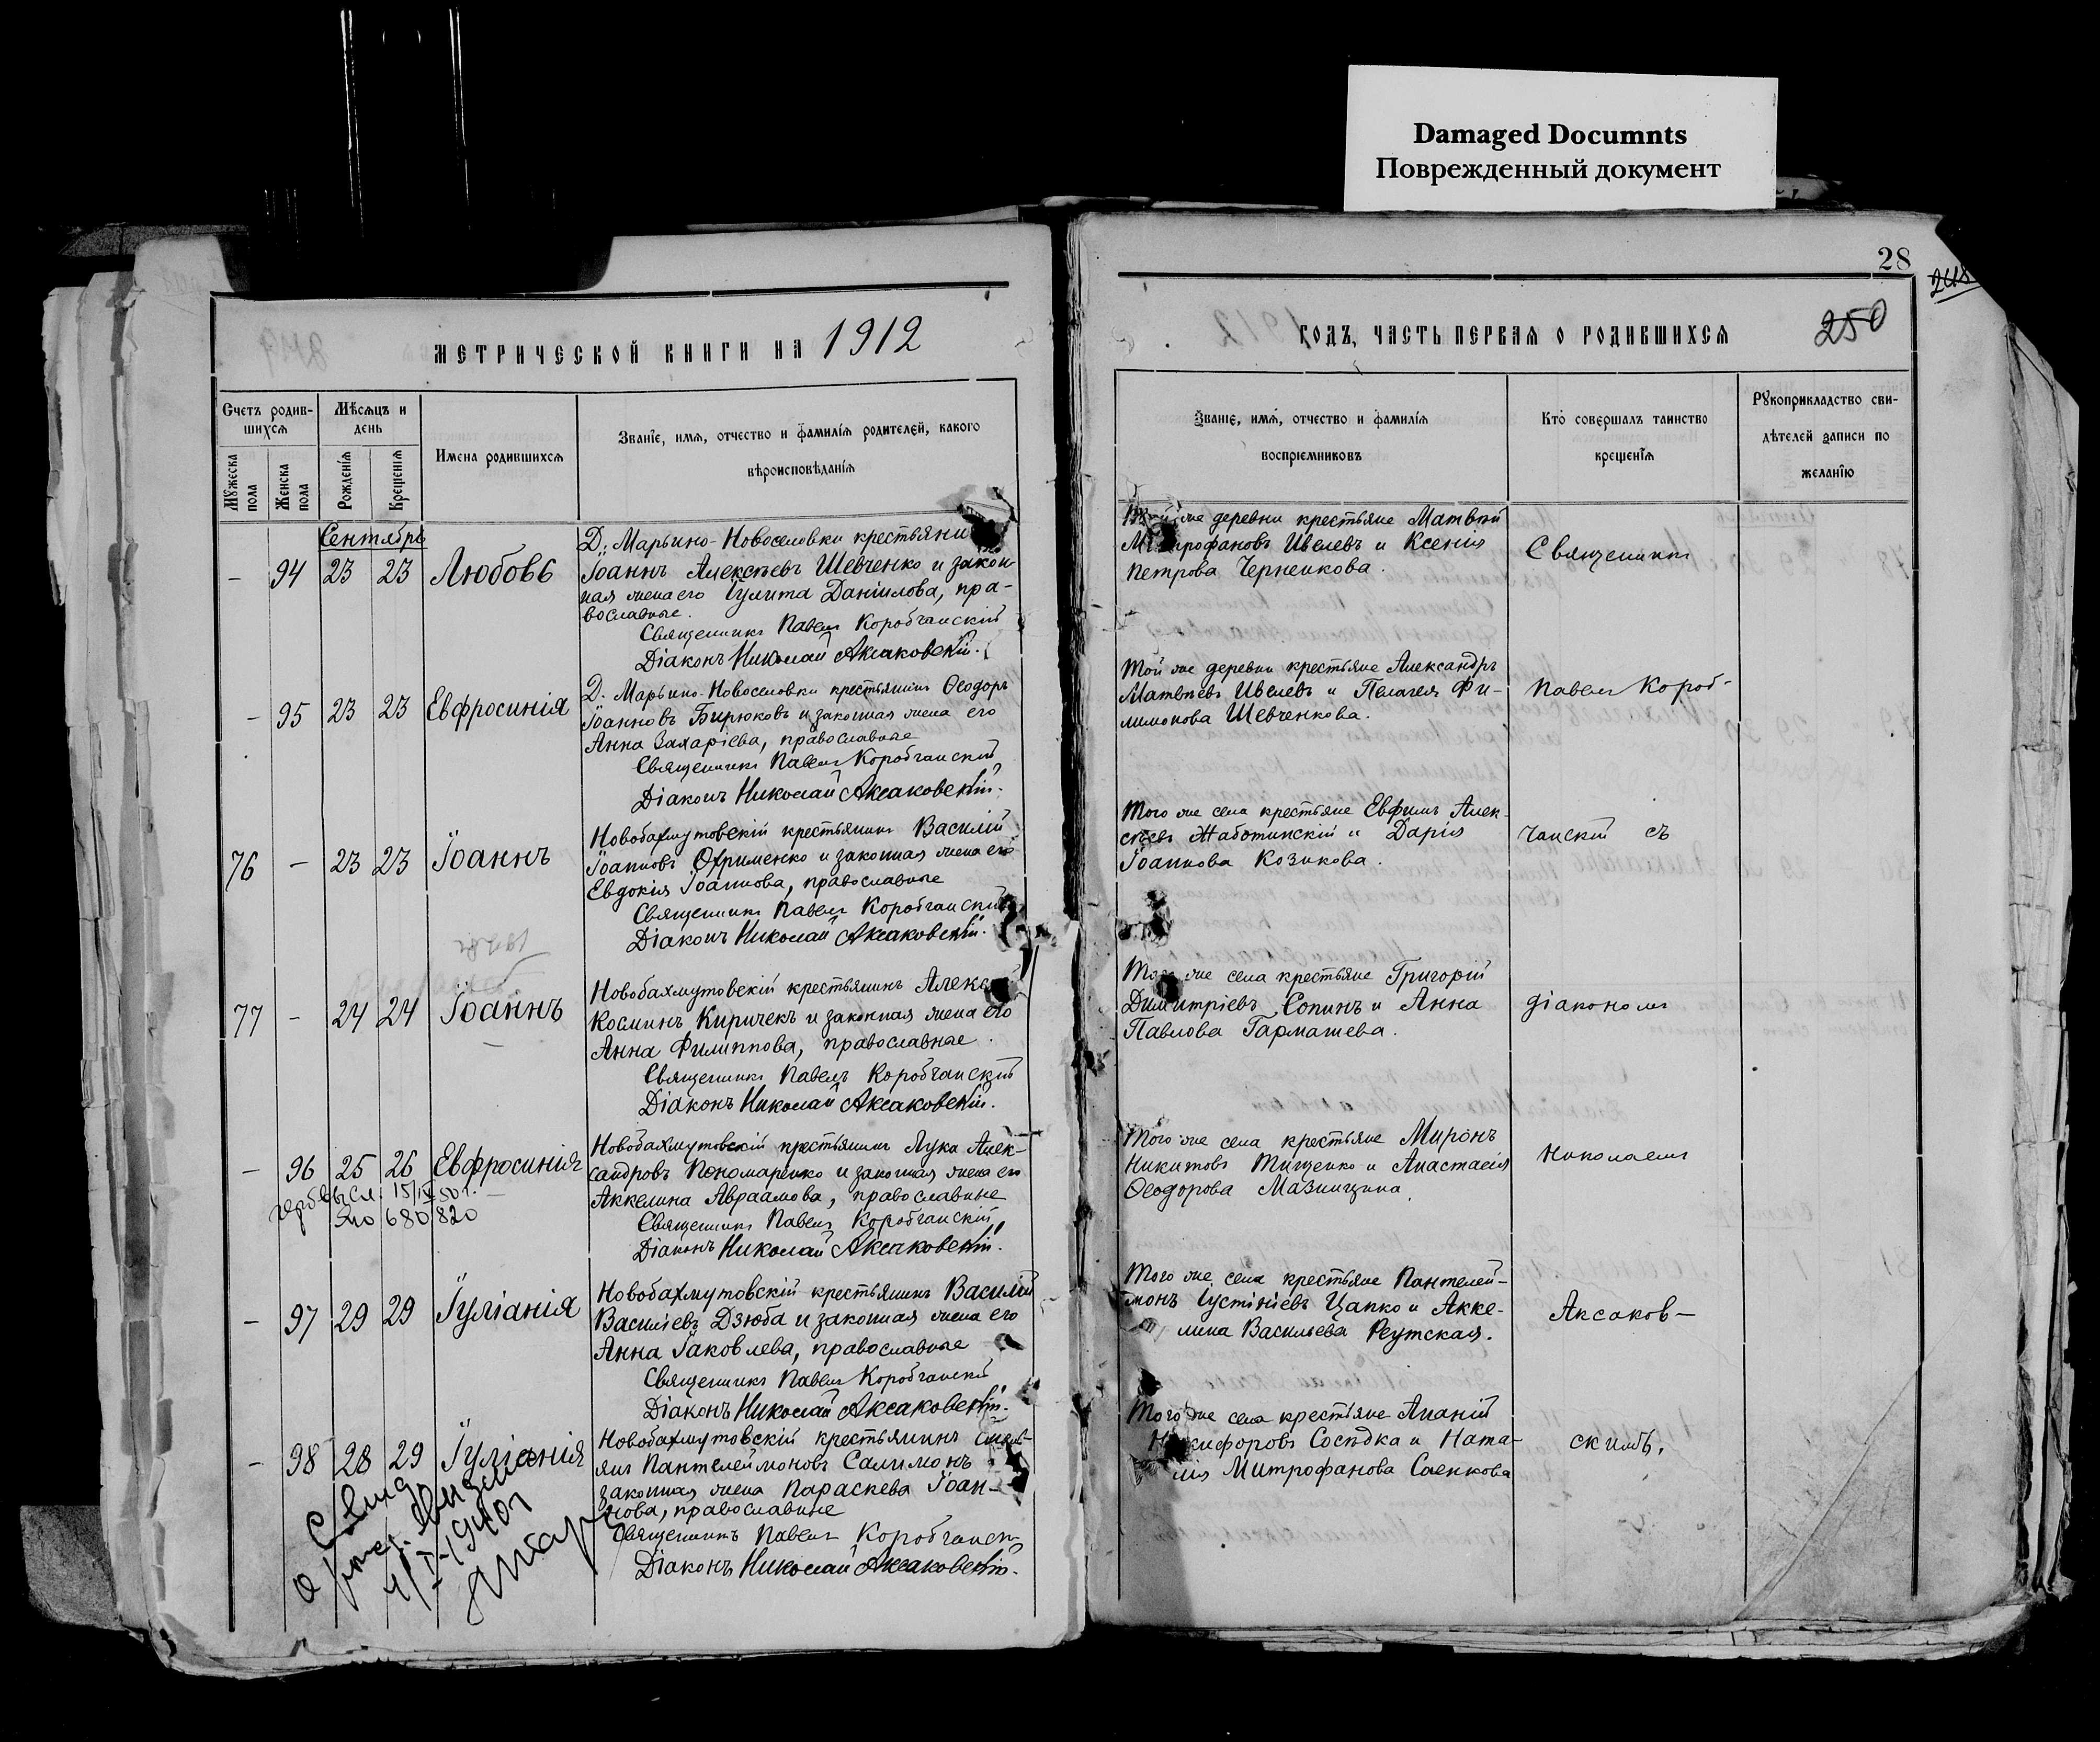 Damaged Documnts
Поврежденный документ
28
248
250
МЕТРИЧЕСКОЙ КНИГИ НА 1912
ГОДЪ, ЧАСТЬ ПЕРВАЯ О РОДИВШИХСЯ
Счетъ родив-
шихся
Мѣсяцъ и
день
Имена родившихся
Званіе, имя, отчество и фамилія родителей, какого
вѣроисповѣданія
Мужеска
пола
Женска
пола
Рожденія
Крещенія
Званіе, имя, отчество и фамилія
воспріемниковъ
Кто совершалъ таинство
крещенія
Рукоприкладство сви-
дѣтелей записи по
желанію
Сентябрь
– 94 23 23 Любовь
Д. Марьино-Новоселовки крестьяни
Іоаннъ Алексѣевъ Шевченко и закон-
ная жена его Іулита Даніилова, пра-
вославные.
Священникъ Павелъ Коробчанскій
Діаконъ Николай Аксаковскій.
Той же деревни крестьяне Матвѣй
Митрофановъ Ивелевъ и Ксенія
Петрова Черненкова.
Священникъ
– 95 23 23 Евфросинія
Д. Марьино-Новоселовки крестьянинъ Ѳеодоръ
Іоанновъ Бирюковъ и законная жена его
Анна Захаріева, православные
Священникъ Павелъ Коробчанскій
Діаконъ Николай Аксаковскій.
Той же деревни крестьяне Александръ
Матвѣевъ Ивелевъ и Пелагея Фи-
лимонова Шевченкова.
Павелъ Короб-
76 – 23 23 Іоаннъ
Новобахмутовскій крестьянинъ Василій
Іоанновъ Охрименко и законная жена его
Евдокія Іоаннова, православные
Священникъ Павелъ Коробчанскій
Діаконъ Николай Аксаковскій.
Того же села крестьяне Евфимъ Алек-
сѣевъ Жаботинскій и Дарія
Іоаннова Козикова.
чанскій съ
77 – 24 24 Іоаннъ
Новобахмутовскій крестьянинъ Алекс
Косминъ Киричекъ и законная жена его
Анна Филиппова, православные.
Священникъ Павелъ Коробчанскій
Діаконъ Николай Аксаковскій.
Того же села крестьяне Григорій
Димитріевъ Сопинъ и Анна
Павлова Гармашева.
діакономъ
– 96 25 26 Евфросинія
680 820
Новобахмутовскій крестьянинъ Лука Алек-
сандровъ Пономаренко и законная жена его
Аккелина Авраамова, православные
Священникъ Павелъ Коробчанскій,
Діаконъ Николай Аксаковскій.
Того же села крестьяне Миронъ
Никитовъ Тищенко и Анастасія
Ѳеодорова Мазницина.
Николаемъ
– 97 29 29 Іуліанія
Новобахмутовскій крестьянинъ Василій
Василіевъ Дзюба и законная жена его
Анна Іаковлева, православные
Священникъ Павелъ Коробчанскій
Діаконъ Николай Аксаковскій.
Того же села крестьяне Пантелей-
монъ Іустиніевъ Цапко и Акке-
лина Васильева Реутская.
Аксаков-
– 98 28 29 Іуліанія
Новобахмутовскій крестьянинъ
Пантелеймоновъ Салимонъ
законная жена Параскева Іоан-
нова, православные
Священникъ Павелъ Коробчанск
Діаконъ Николай Аксаковскій.
Того же села крестьяне Ананій
Никифоровъ Сосѣдка и Ната-
лія Митрофанова Саенкова
скимъ.